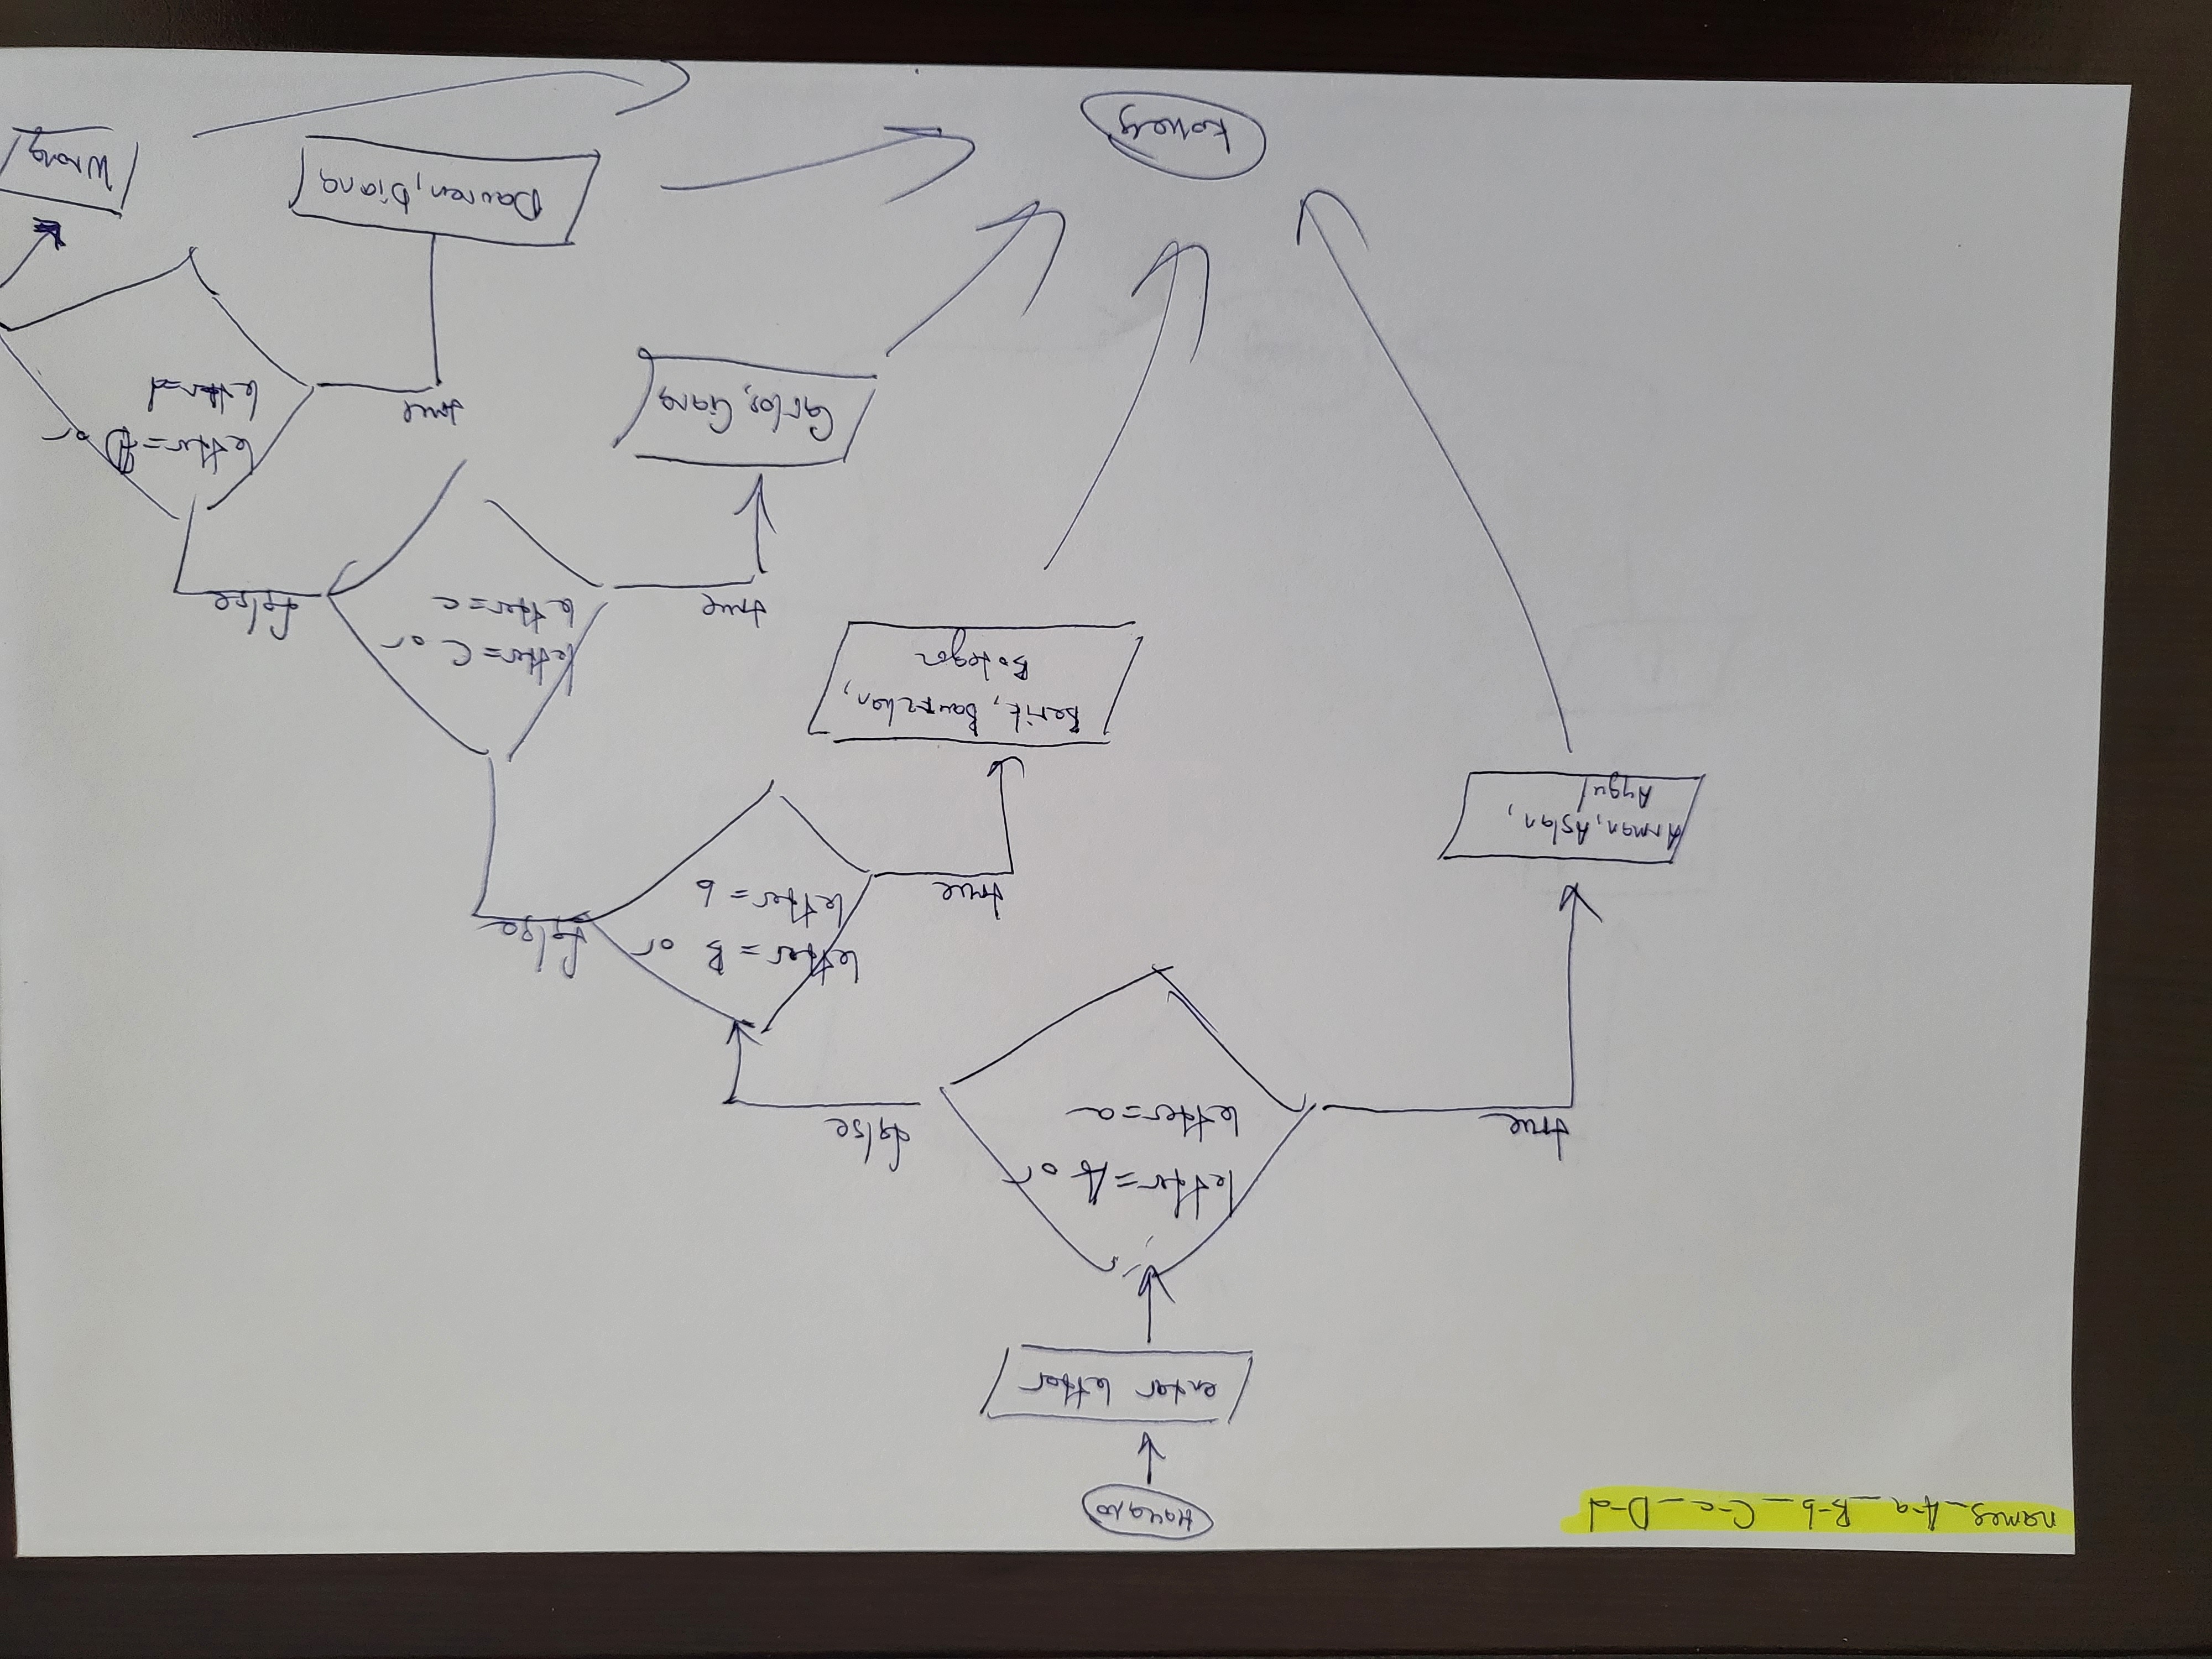 names_A-a_B-b_C-c_D-d
начало
enter letter
letter=A or
letter=a
true
false
Arman, Aslan,
Aygul
letter=B or
letter=b
true
false
Berik, Baurzhan,
Botagoz
letter=C or
letter=c
true
false
Carlos, Ciara
letter=D or
letter=d
true
Dauren, Diana
Wrong
конец